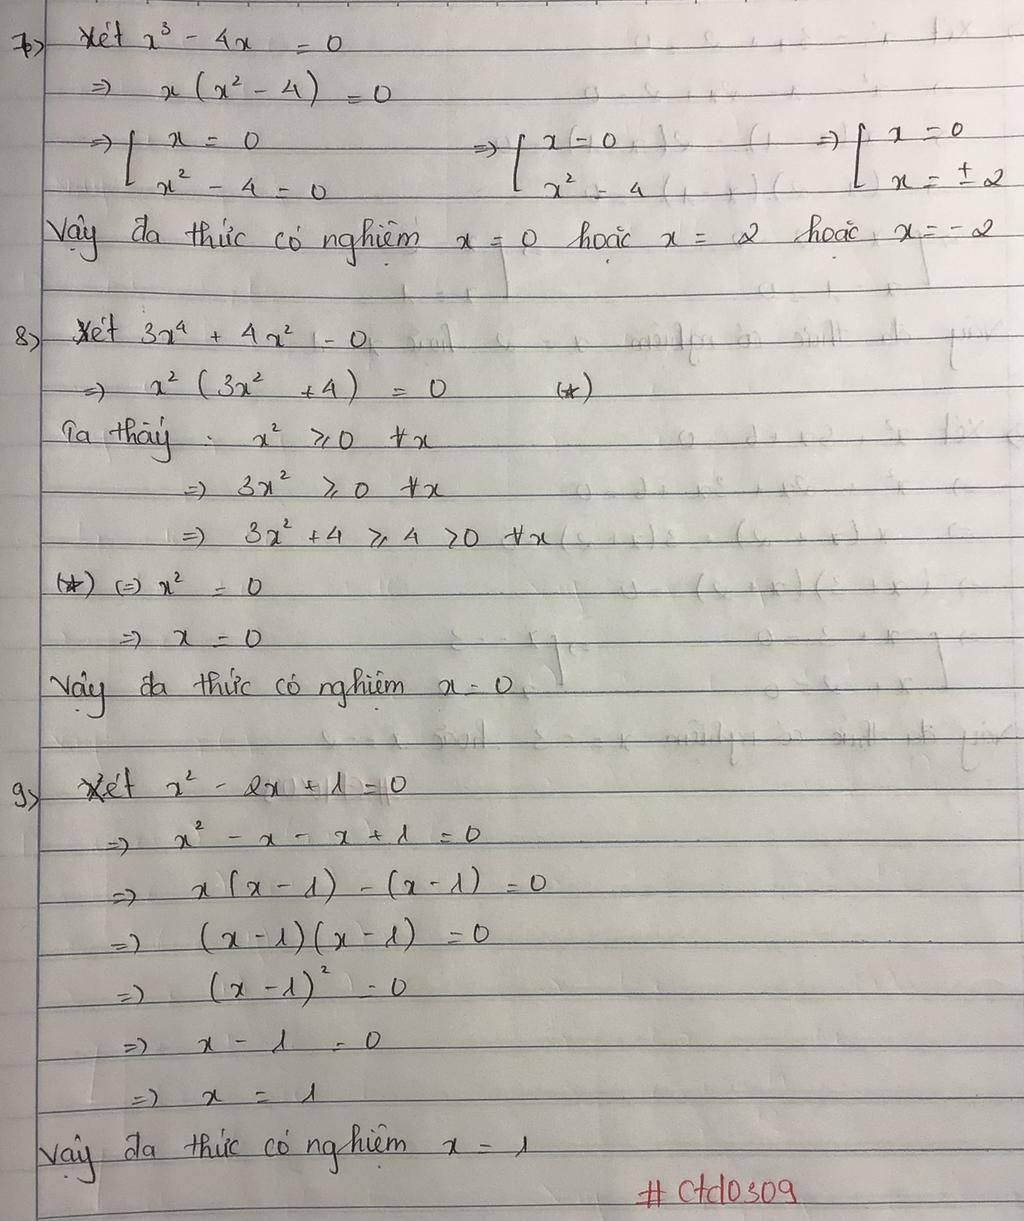 7) Xét x³ - 4x = 0
=> x (x² - 4) = 0
=> [ x = 0 => [ x = 0 => [ x = 0
x² - 4 = 0 x² = 4 x = ± 2
Vậy đa thức có nghiệm x = 0 hoặc x = 2 hoặc x = -2
8) Xét 3x⁴ + 4x² = 0
=> x² (3x² + 4) = 0 (*)
Ta thấy : x² ⩾ 0 ∀x
=> 3x² ⩾ 0 ∀x
=> 3x² + 4 ⩾ 4 > 0 ∀x
(*) (=) x² = 0
=> x = 0
Vậy đa thức có nghiệm x = 0
9) Xét x² - 2x + 1 = 0
=> x² - x - x + 1 = 0
=> x (x - 1) - (x - 1) = 0
=> (x - 1) (x - 1) = 0
=> (x - 1)² = 0
=> x - 1 = 0
=> x = 1
Vậy đa thức có nghiệm x = 1
# Ctd0309